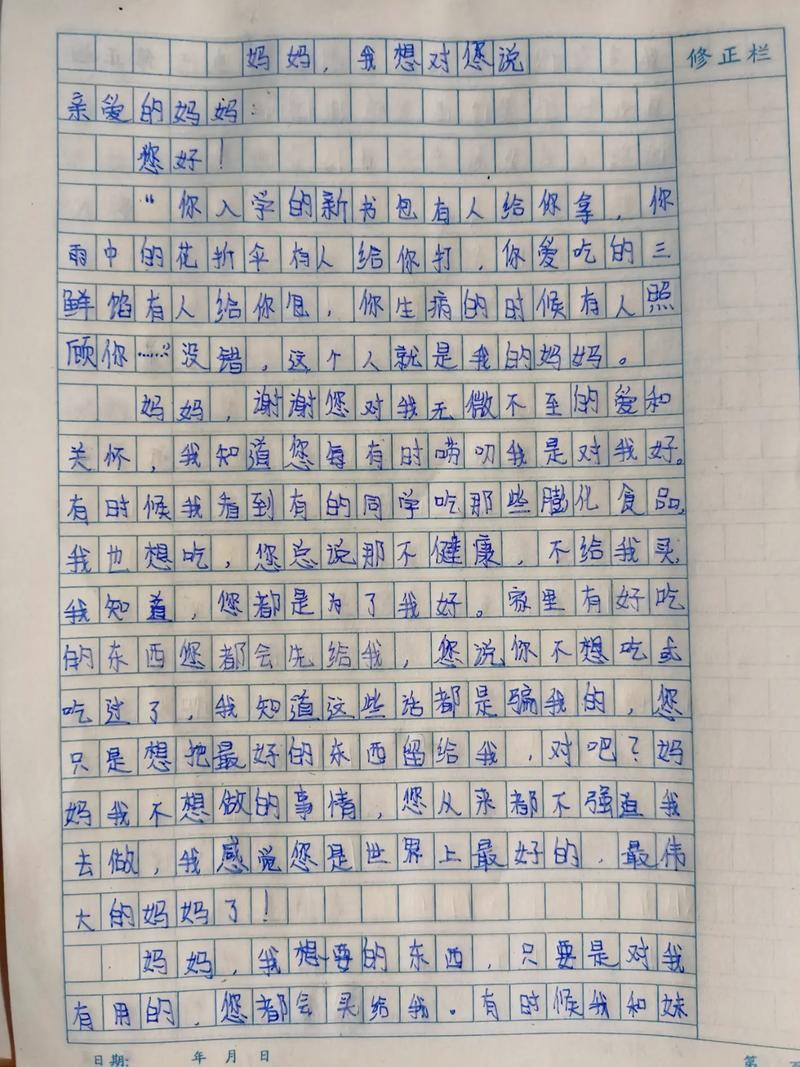 妈妈，我想对您说
修正栏
亲爱的妈妈：
您好！
“你入学的新书包有人给你拿，你
雨中的花折伞有人给你打，你爱吃的三
鲜馅有人给你包，你生病的时候有人照
顾你……”没错，这个人就是我的妈妈。
妈妈，谢谢您对我无微不至的爱和
关怀，我知道您每有时唠叨我是对我好。
有时候我看到有的同学吃那些膨化食品，
我也想吃，您总说那不健康，不给我买，
我知道，您都是为了我好。家里有好吃
的东西您都会先给我，您说你不想吃或
吃过了，我知道这些话都是骗我的，您
只是想把最好的东西留给我，对吧？妈
妈我不想做的事情，您从来都不强迫我
去做，我感觉您是世界上最好的，最伟
大的妈妈了！
妈妈，我想要的东西，只要是对我
有用的，您都会买给我。有时候我和妹
日期： 年 月 日
第